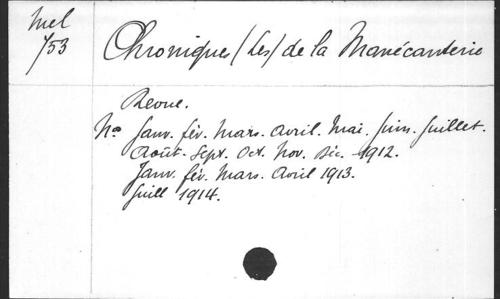 Mel
753
Chronique (Les) de la Manécanterie
Revue.
No Janv. fév. Mars. Avril. Mai. Juin. Juillet.
Août. Sept. Oct. Nov. Déc. - 1912.
Janv. fév. Mars. Avril 1913.
Juill 1914.